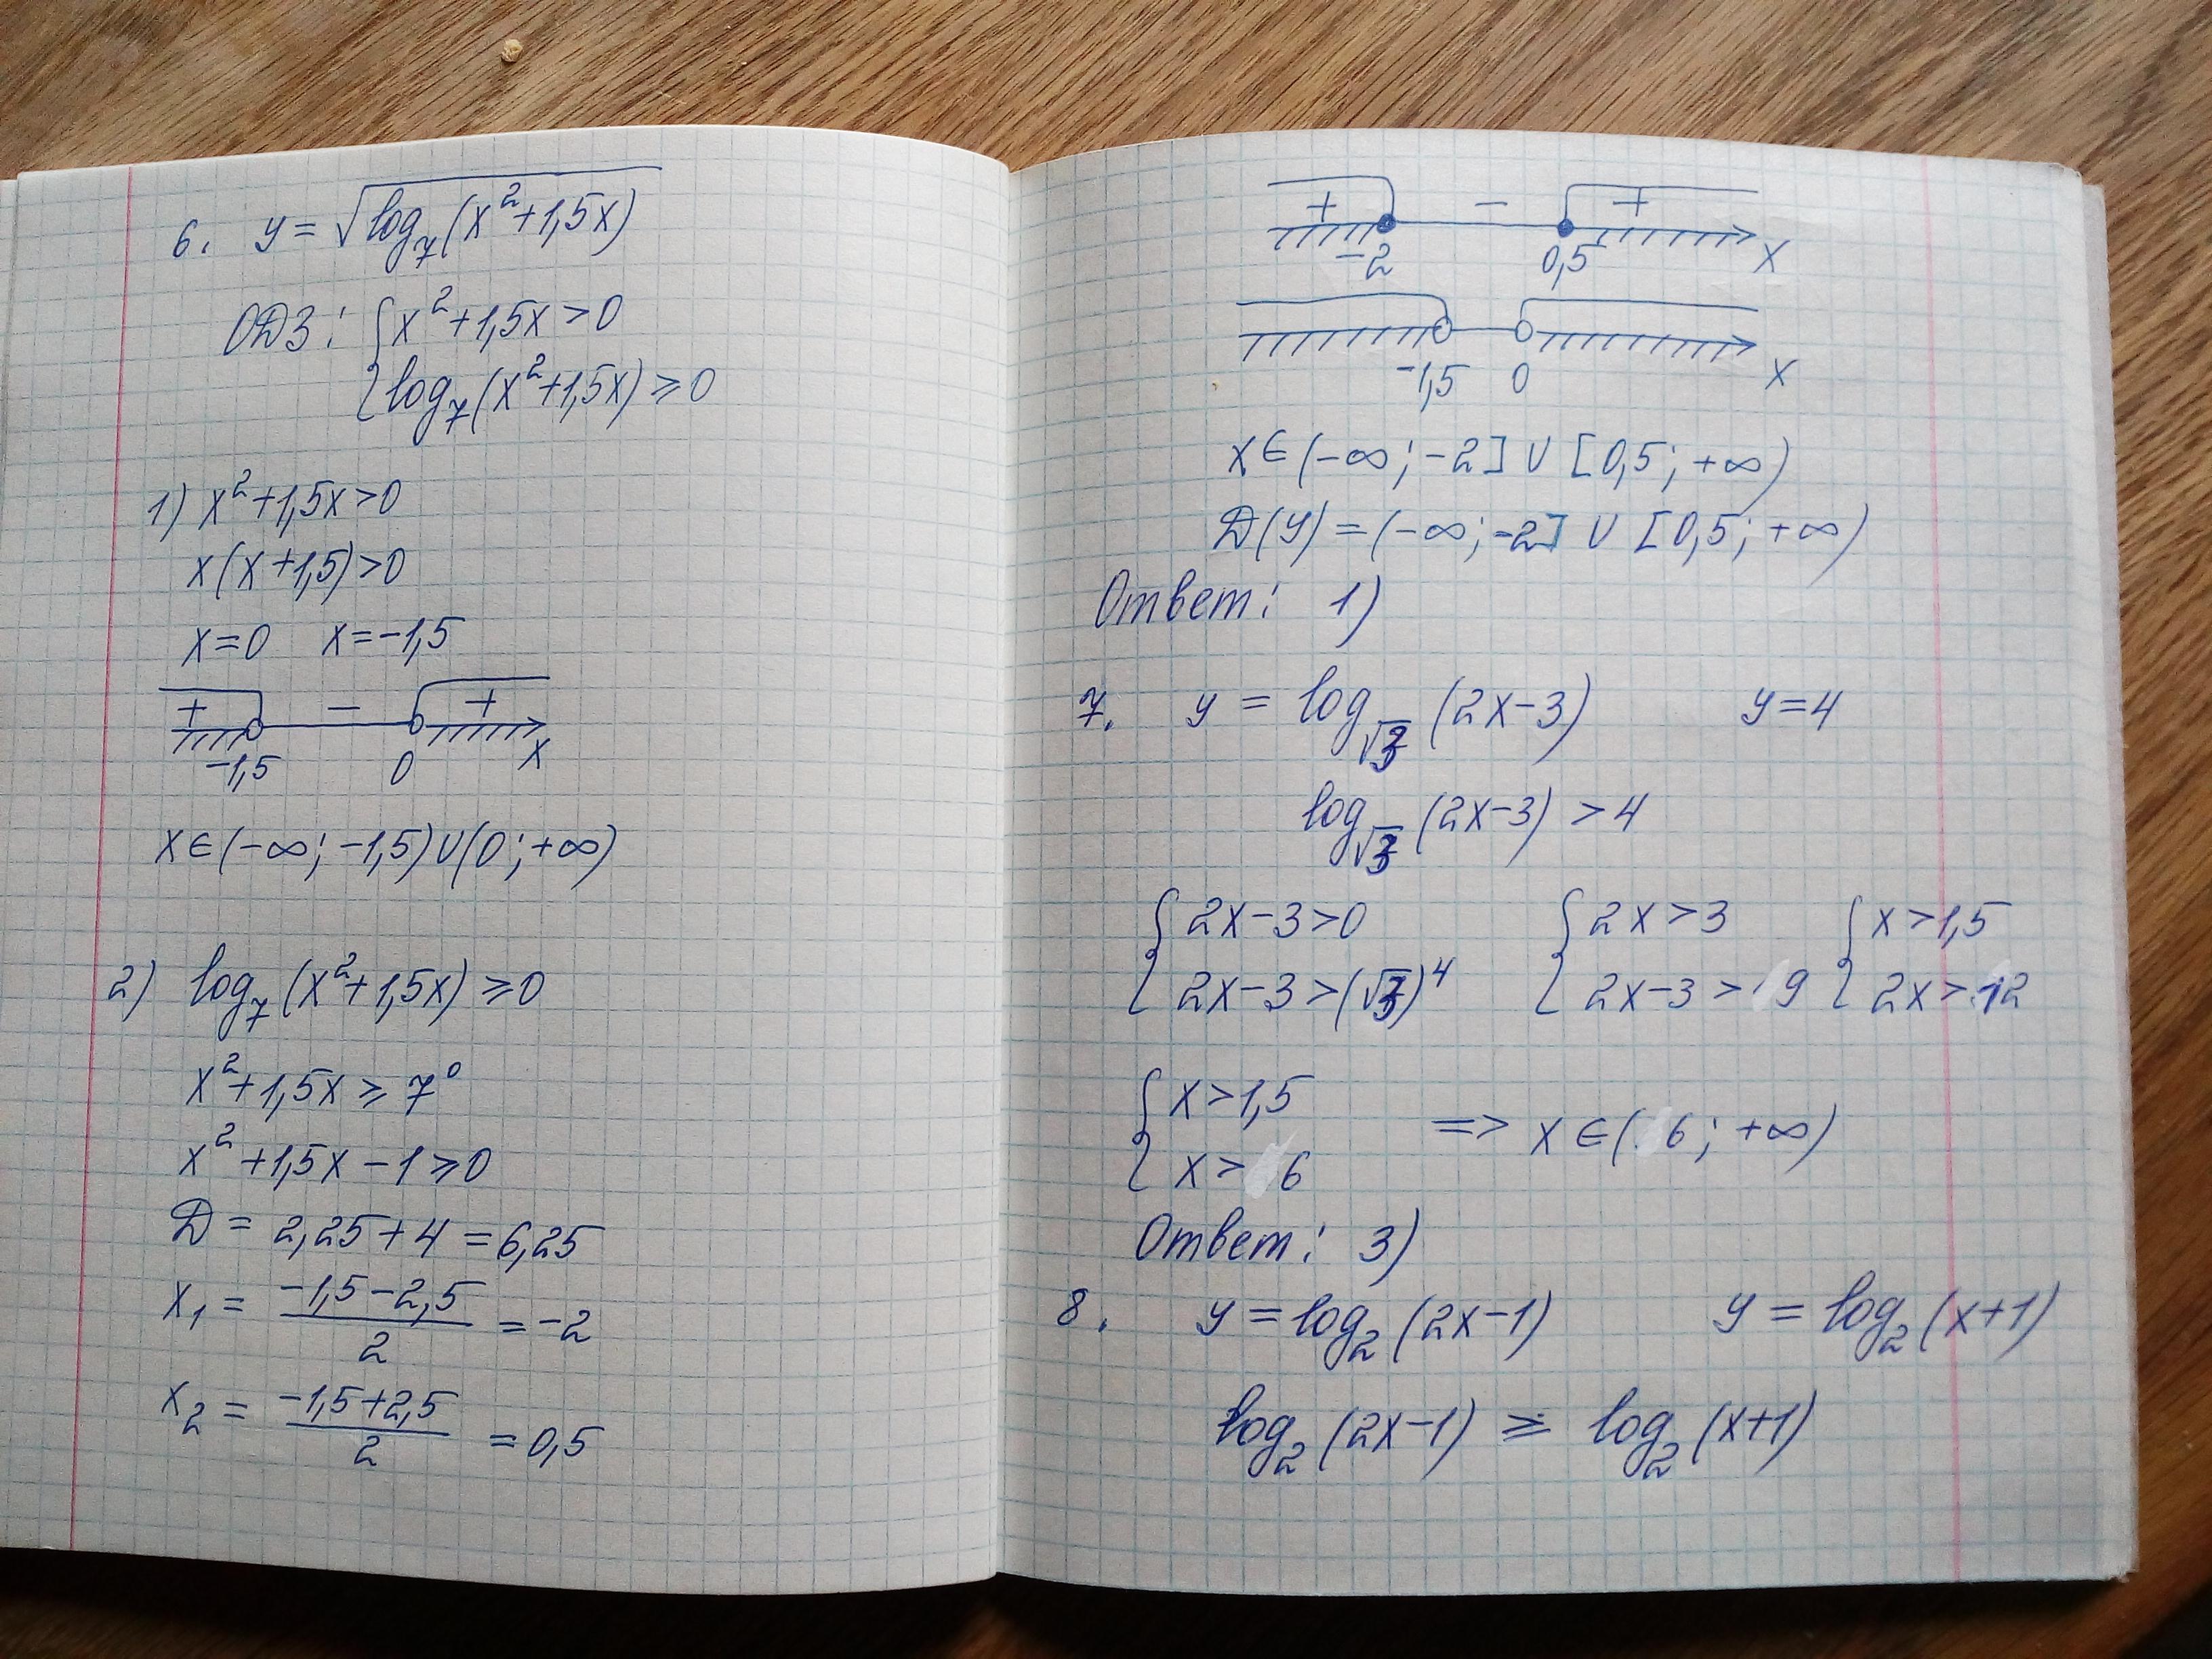 6. y = √log₇(x²+1,5x)
ОДЗ: { x²+1,5x>0
{ log₇(x²+1,5x) ⩾ 0
1) x²+1,5x>0
x(x+1,5)>0
x=0 x=-1,5
+ - +
-1,5 0 x
x∈(-∞; -1,5)∪(0; +∞)
2) log₇(x²+1,5x) ⩾ 0
x²+1,5x ⩾ 7⁰
x²+1,5x-1⩾0
D = 2,25+4 = 6,25
x₁ = (-1,5-2,5)/2 = -2
x₂ = (-1,5+2,5)/2 = 0,5
+ - +
-2 0,5 x
-1,5 0 x
x∈(-∞; -2] ∪ [0,5; +∞)
D(y) = (-∞; -2] ∪ [0,5; +∞)
Ответ: 1)
7. y = log_√3 (2x-3) y=4
log_√3 (2x-3) > 4
{ 2x-3>0 { 2x>3 { x>1,5
{ 2x-3>(√3)⁴ { 2x-3>9 { 2x>12
{ x>1,5
{ x>6 => x∈(6; +∞)
Ответ: 3)
8. y = log₂(2x-1) y = log₂(x+1)
log₂(2x-1) ⩾ log₂(x+1)